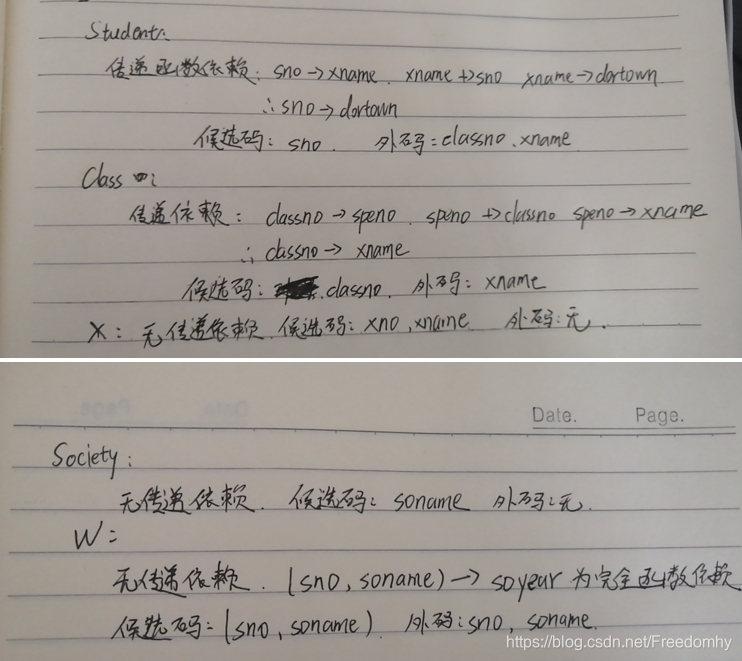 Student:
传递函数依赖: sno→xname. xname↛sno xname→dortown
∴ sno→dortown
候选码: sno. 外码: classno、xname
Class :
传递依赖: classno→speno. speno↛classno speno→xname
∴ classno→ xname
候选码: classno. 外码: xname
X: 无传递依赖. 候选码: xno, xname 外码: 无.
Date. Page.
Society:
无传递依赖. 候选码: soname 外码: 无.
W:
无传递依赖. (sno, soname)→ soyear 为完全函数依赖
候选码: (sno, soname). 外码: sno, soname.
https://blog.csdn.net/Freedomhy